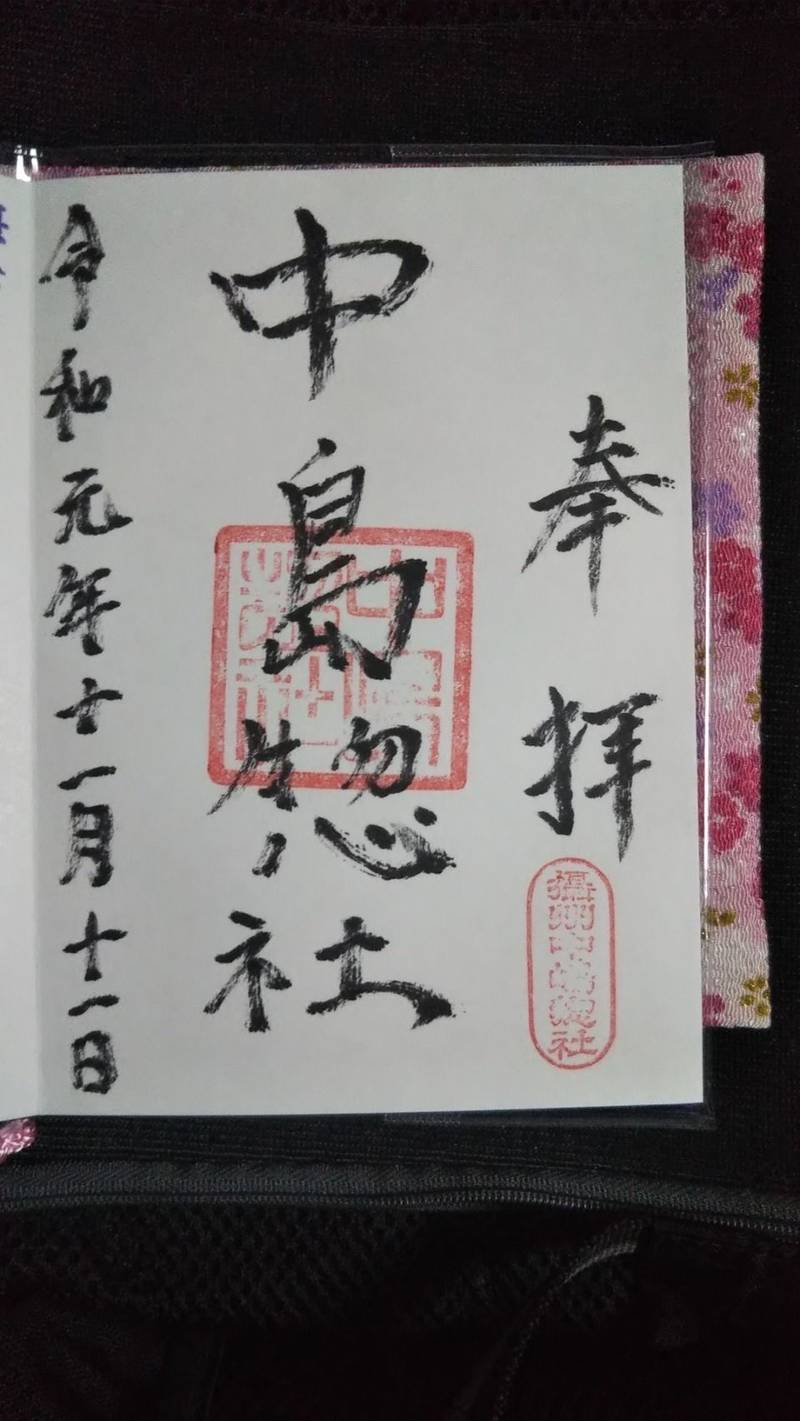 奉拝
攝州中嶋惣社
中島惣社
令和元年十一月十一日